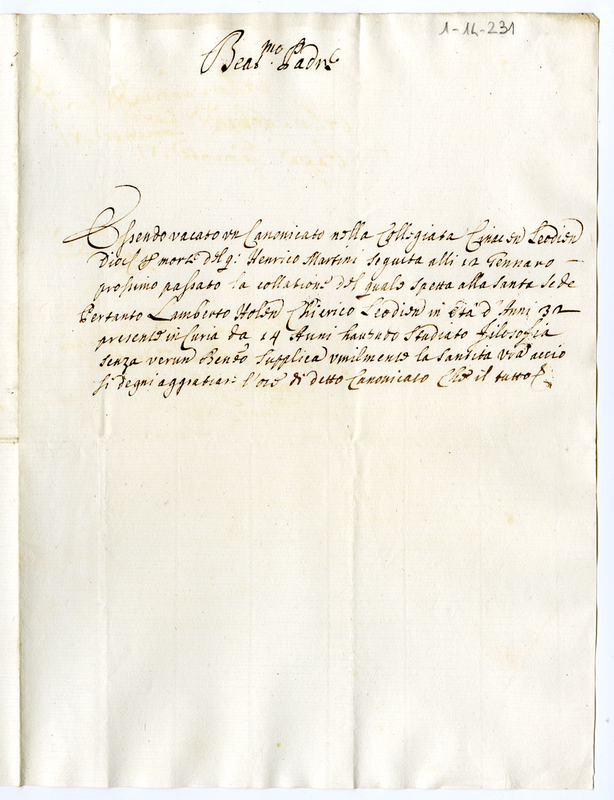 1-14-231
Beat.mo Padre
Essendo vacato un Canonicato nella Collegiata Leodien
Dioc. p morte del q. Henrico Martini seguita alli 12 Gennaro
prossimo passato la collatione del quale spetta alla Santa Sede
Pertanto Lamberto Holen Chierico Leodien in età d'Anni 32
presente in Curia da 14 Anni havendo studiato filosofia
senza verun Benefo supplica umilmente la Santità Vra acciò
si degni aggratiar. l'ore di detto Canonicato Che il tutto